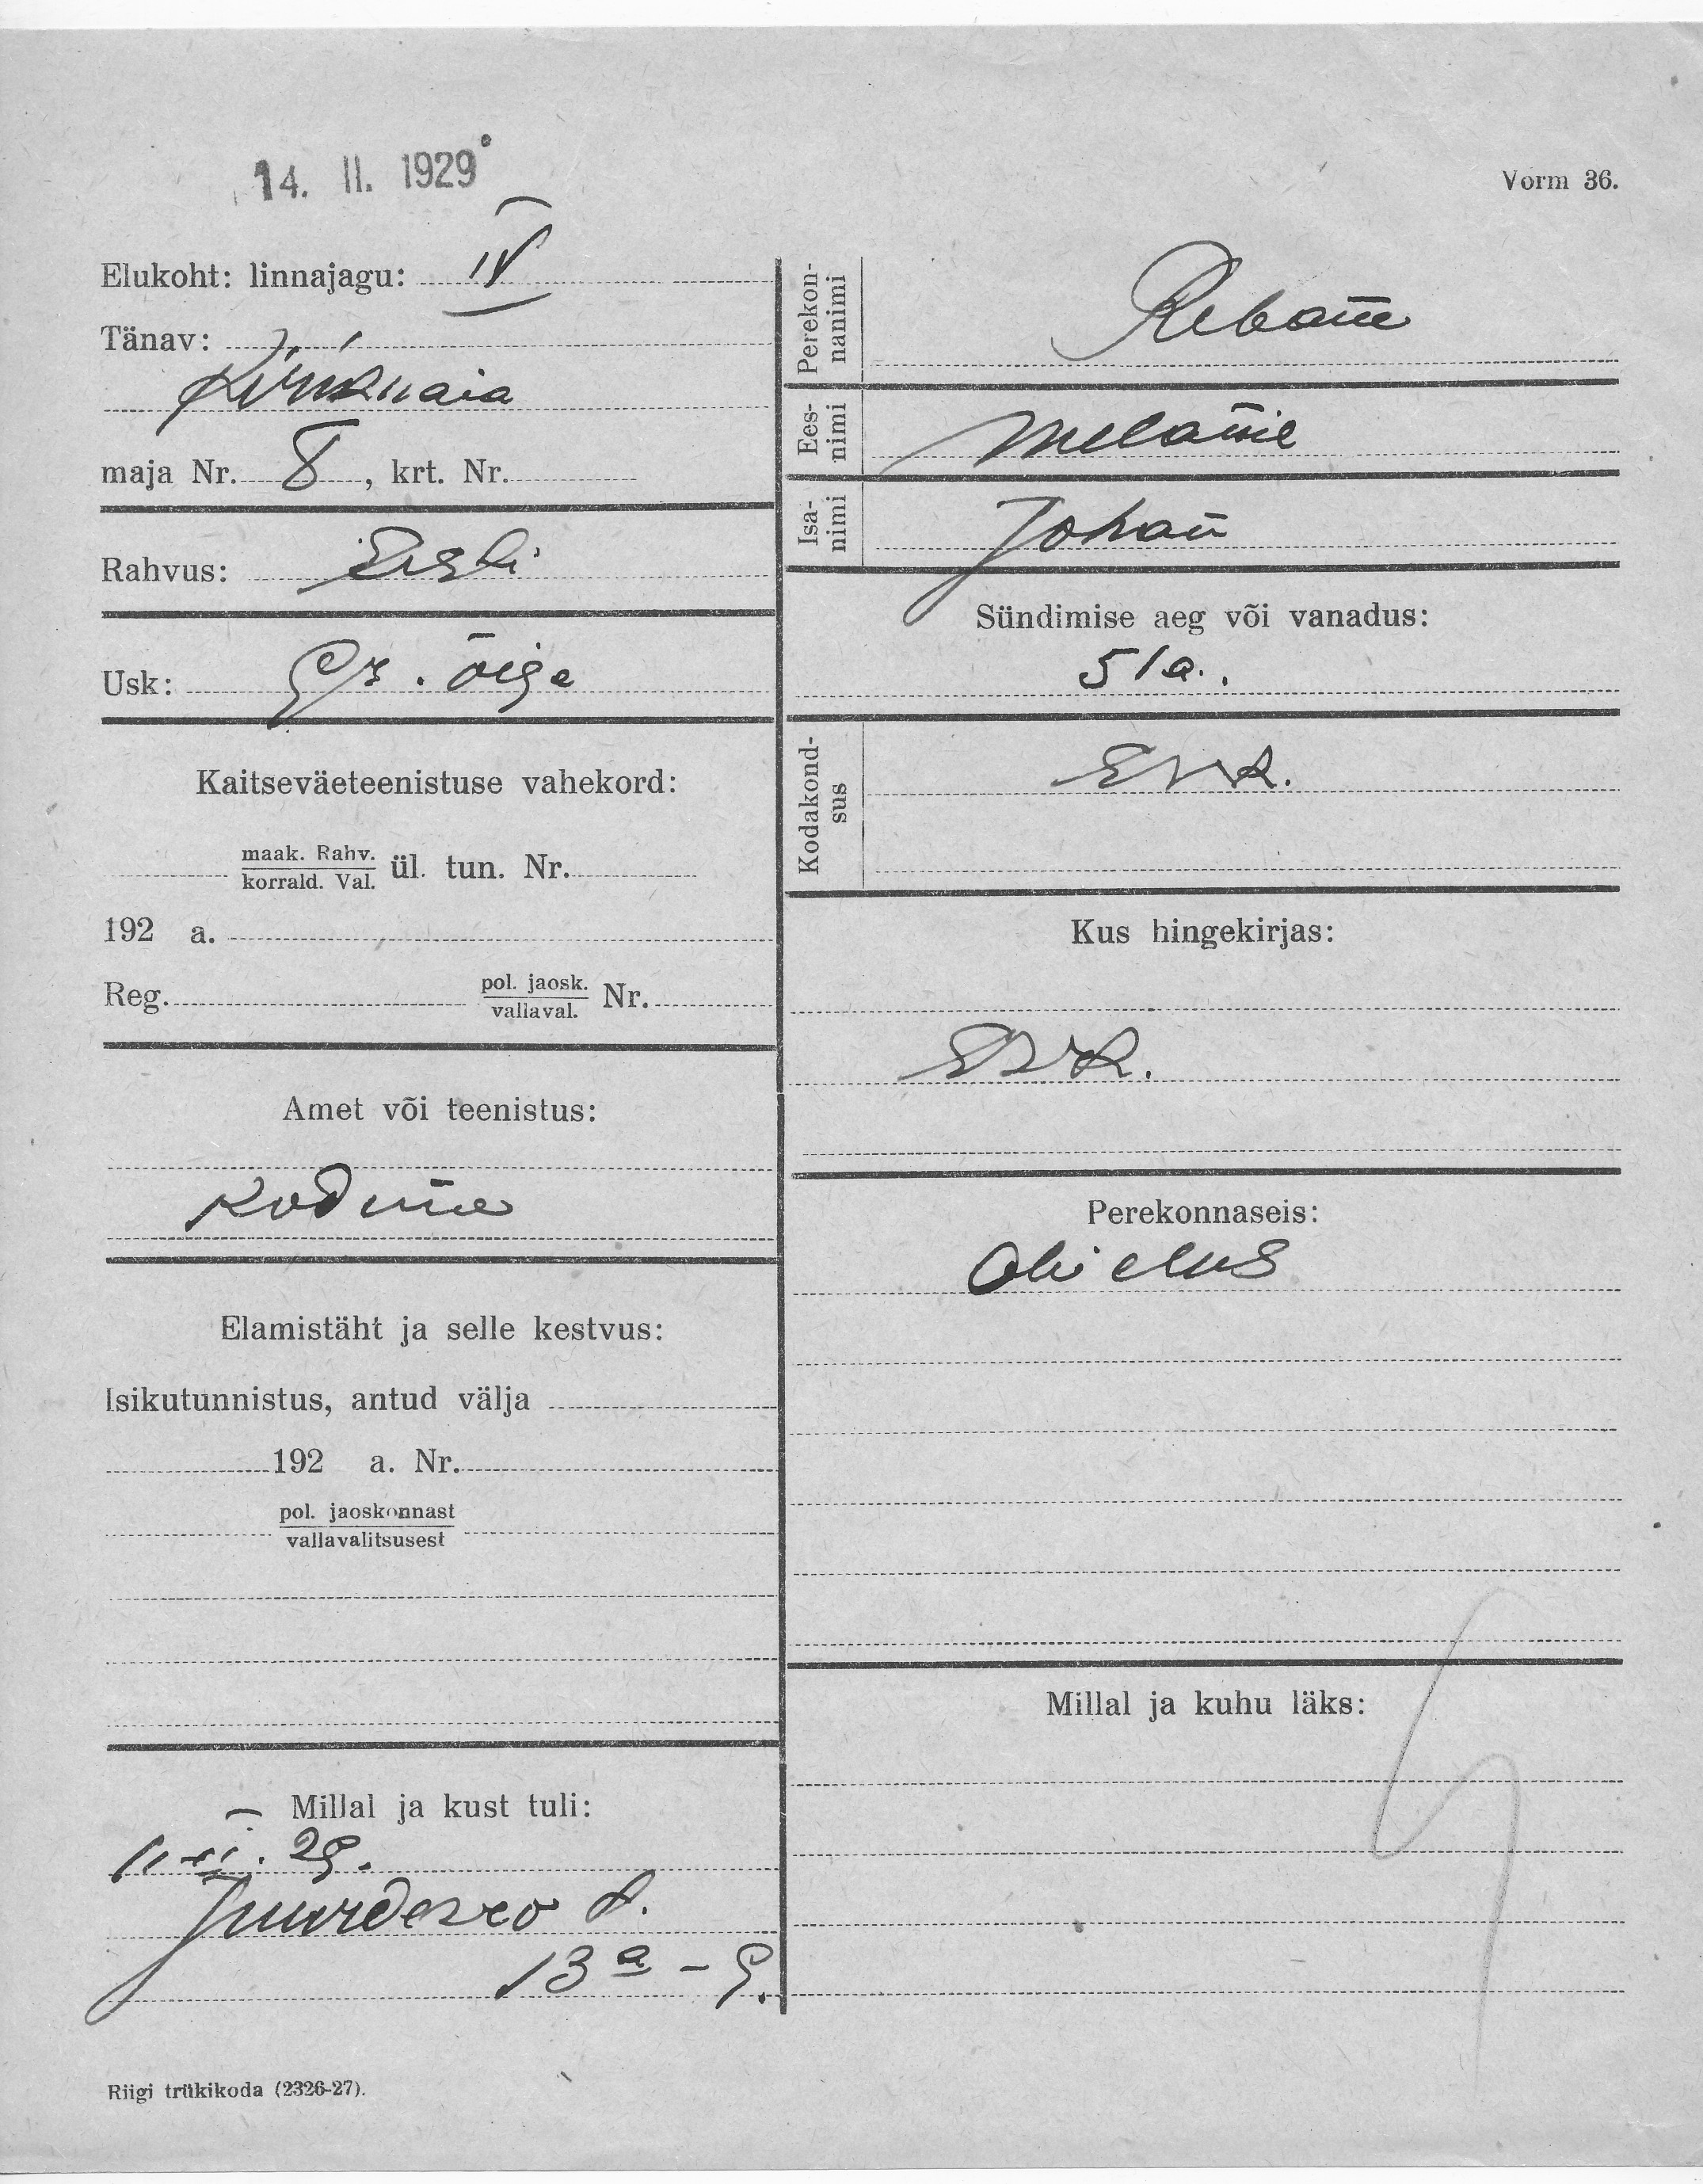 14. II. 1929
Vorm 36.
Elukoht: linnajagu: IV
Tänav:
maja Nr. 8, krt. Nr.
Rahvus: Eesti
Usk: õige
Kaitseväeteenistuse vahekord:
maak. Rahv.
korrald. Val. ül. tun. Nr.
192 a.
Reg. pol. jaosk.
vallaval. Nr.
Amet või teenistus:
Kodune
Elamistäht ja selle kestvus:
Isikutunnistus, antud välja
192 a. Nr.
pol. jaoskonnast
vallavalitsusest
Millal ja kust tuli:
29.
13 a - 9.
Riigi trükikoda (2326-27).
Perekon-
nanimi
Rebane
Ees-
nimi
Melanie
Isa-
nimi
Johan
Sündimise aeg või vanadus:
51 a.
Kodakond-
sus
Kus hingekirjas:
Perekonnaseis:
Abielus
Millal ja kuhu läks: